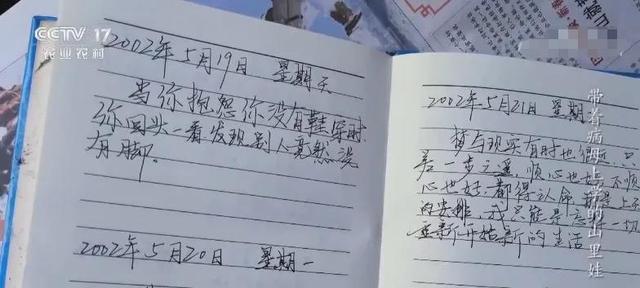 CCTV 17
农业农村
2002年5月19日 星期天
当你抱怨你没有鞋穿时,
你回头一看发现别人竟然没
有脚。
2002年5月20日 星期一
2002年5月21日 星期
梦与现实有时也
差一步之遥 顺心也好 不顺
心也好 都得认命
的安排 我只能是 一切
重新开始新的生活
带着病 上 的山里娃